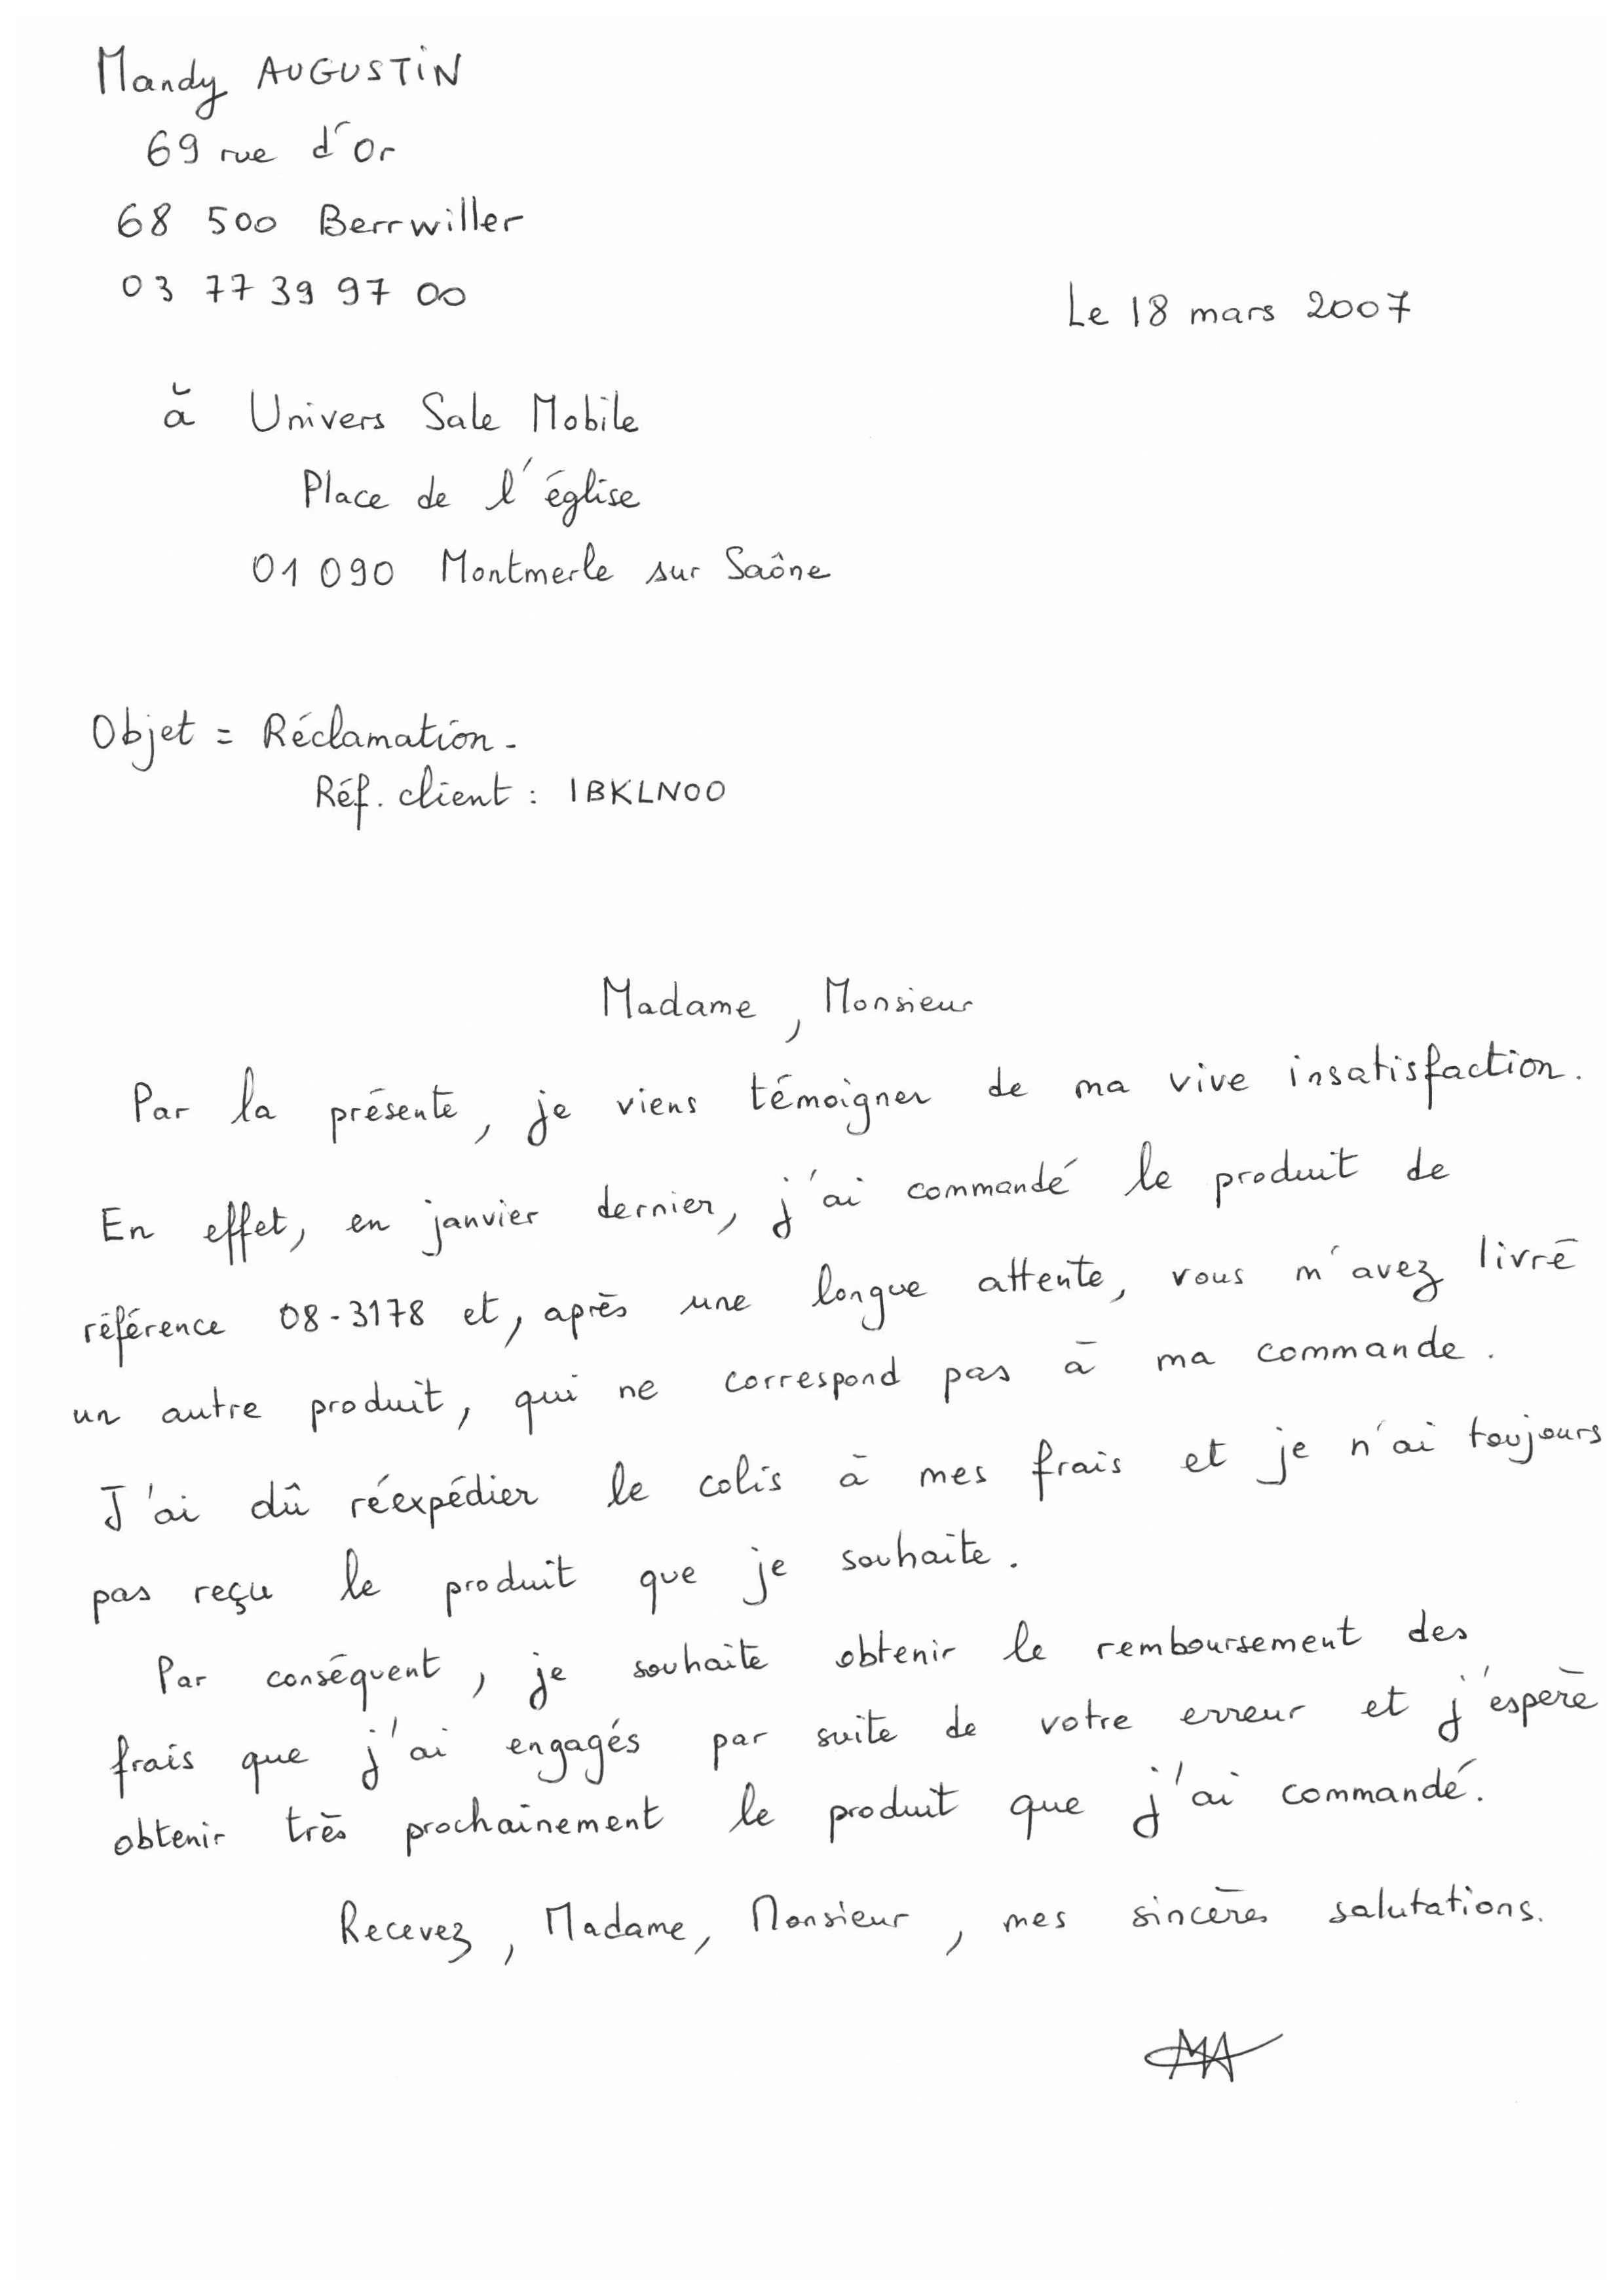 Mandy AUGUSTIN
69 rue d'Or
68 500 Berrwiller
03 77 39 97 00
Le 18 mars 2007
à Univers Sale Mobile
Place de l'église
01 090 Montmerle sur Saône
Objet = Réclamation.
Réf. client : IBKLN00
Madame, Monsieur
Par la présente, je viens témoigner de ma vive insatisfaction.
En effet, en janvier dernier, j'ai commandé le produit de
référence 08-3178 et, après une longue attente, vous m'avez livré
un autre produit, qui ne correspond pas à ma commande.
J'ai dû réexpédier le colis à mes frais et je n'ai toujours
pas reçu le produit que je souhaite.
Par conséquent, je souhaite obtenir le remboursement des
frais que j'ai engagés par suite de votre erreur et j'espère
obtenir très prochainement le produit que j'ai commandé.
Recevez, Madame, Monsieur, mes sincères salutations.
MA